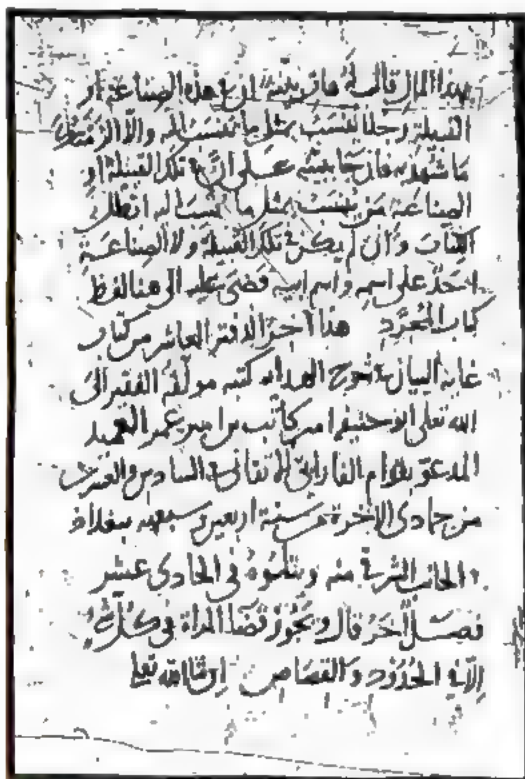 بهذا المال قال له هات بينة ان في هذه الصناعة او
القبيلة رجلا ينسب بمثل ما تنسب اليه والا الزمتك
ما شهد به فان جا ببينة على ان في تلك القبيلة او
الصناعة من ينسب بمثل ما ينسب اليه ابطل
الكتاب وان لم يكن في تلك القبيلة ولا الصناعة
احد على اسمه واسم ابيه قضى عليه الى هنا لفظ
كتاب المجرد هذا آخر الدفتر العاشر من كتاب
غاية البيان شرح الهداية كتبه مولفه الفقير الى
الله تعالى ابو حنيفة امير كاتب بن امير عمر العميد
المدعو بقوام الفارابي الاتقاني في السادس والعشرين
من جمادى الاخرة من سنة اربعين وسبعمائة ببغداد
الجانب الشرقي منه ويتلوه في الحادي عشر
فصل آخر قال ويجوز قضا المراة في كل شي
الا في الحدود والقصاص ان شا الله تعالى